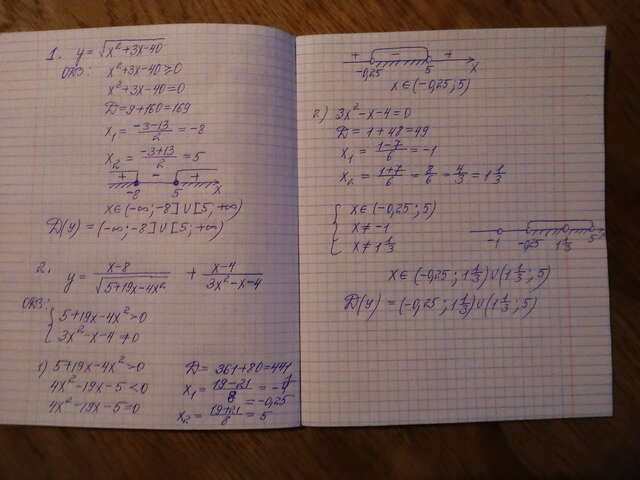 1. y = √(x²+3x-40)
ОДЗ: x²+3x-40≥0
x²+3x-40=0
D=9+160=169
x₁ = (-3-13)/2 = -8
x₂ = (-3+13)/2 = 5
+ - +
-8 5 x
x∈(-∞;-8]∪[5;+∞)
D(y) = (-∞;-8]∪[5;+∞)
2. y = (x-8)/√(5+19x-4x²) + (x-4)/(3x²-x-4)
ОДЗ:
{ 5+19x-4x²>0
3x²-x-4≠0
1) 5+19x-4x²>0
4x²-19x-5<0
4x²-19x-5=0
D = 361+80=441
x₁ = (19-21)/8 = -1/4
= -0,25
x₂ = (19+21)/8 = 5
+ - +
-0,25 5 x
x∈(-0,25;5)
2) 3x²-x-4=0
D=1+48=49
x₁ = (1-7)/6 = -1
x₂ = (1+7)/6 = 8/6 = 4/3 = 1 1/3
{ x∈(-0,25;5)
x≠-1
x≠1 1/3
-1 -0,25 1 1/3 5
x∈(-0,25;1 1/3)∪(1 1/3;5)
D(y) = (-0,25;1 1/3)∪(1 1/3;5)